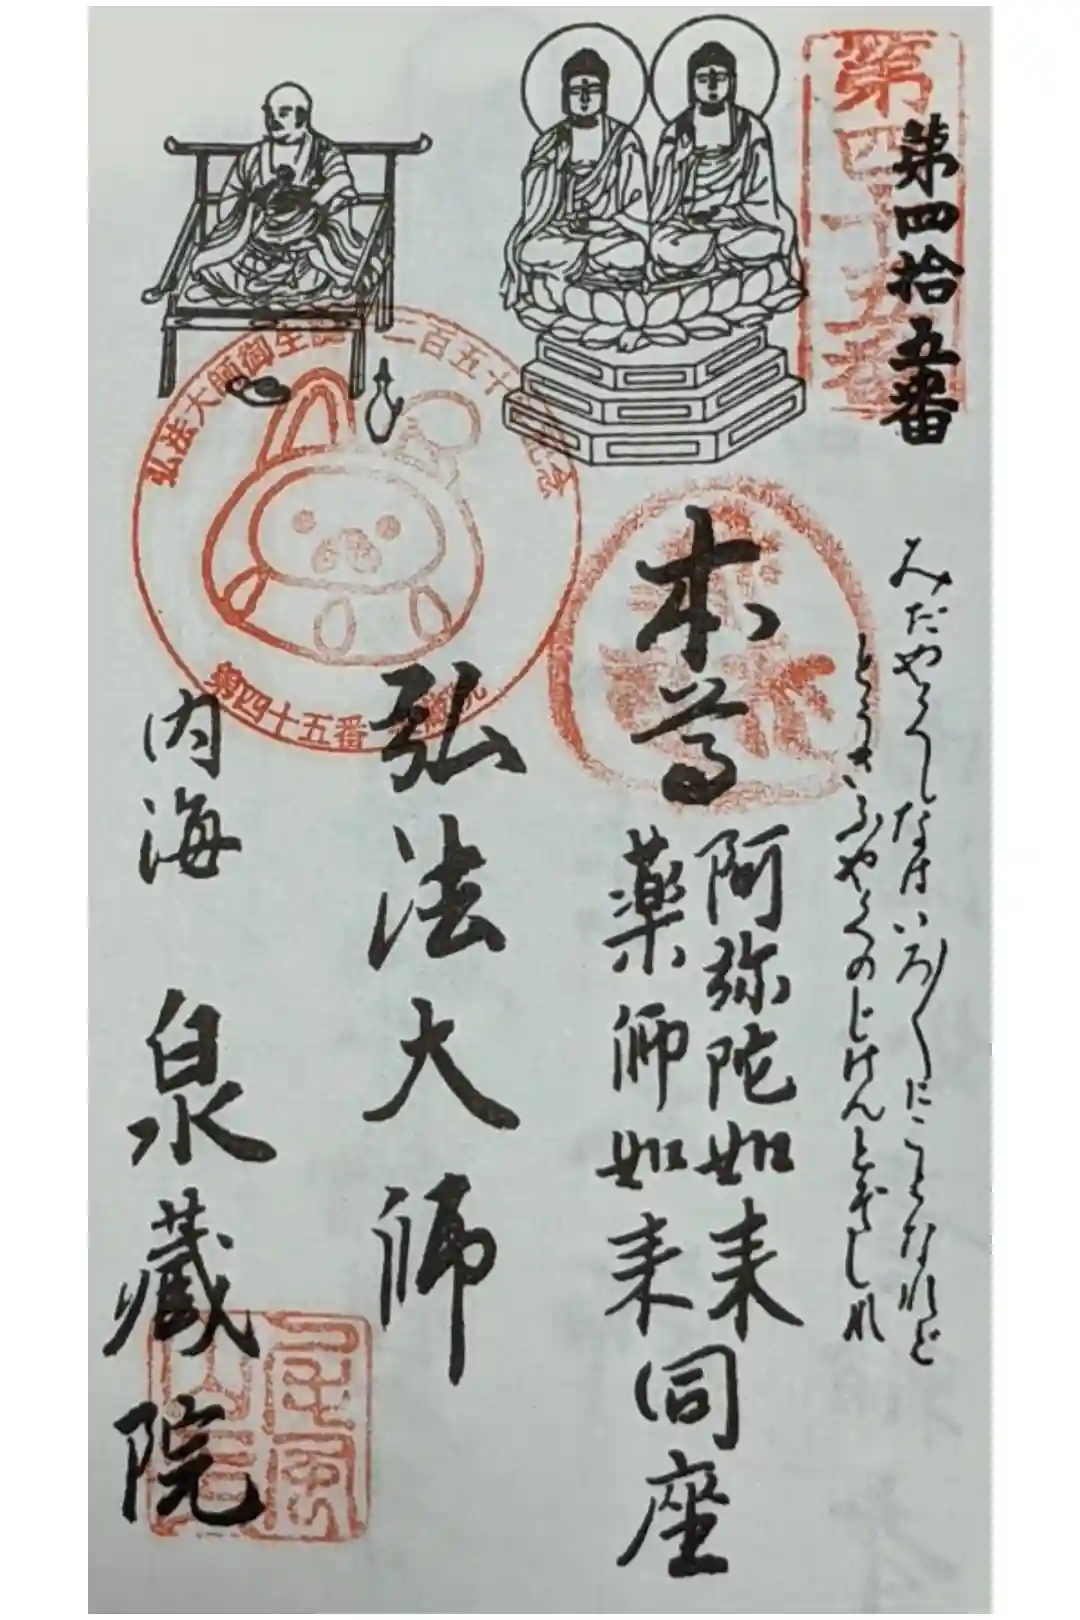 第四拾五番
第四十五番
みだやくしなはいろ〳〵にことなれど
とうさいふやくのじげんとぞしれ
本尊
阿弥陀如来
薬師如来
同座
弘法大師
内海
泉蔵院
弘法大師御生誕
二百五十
第四十五番